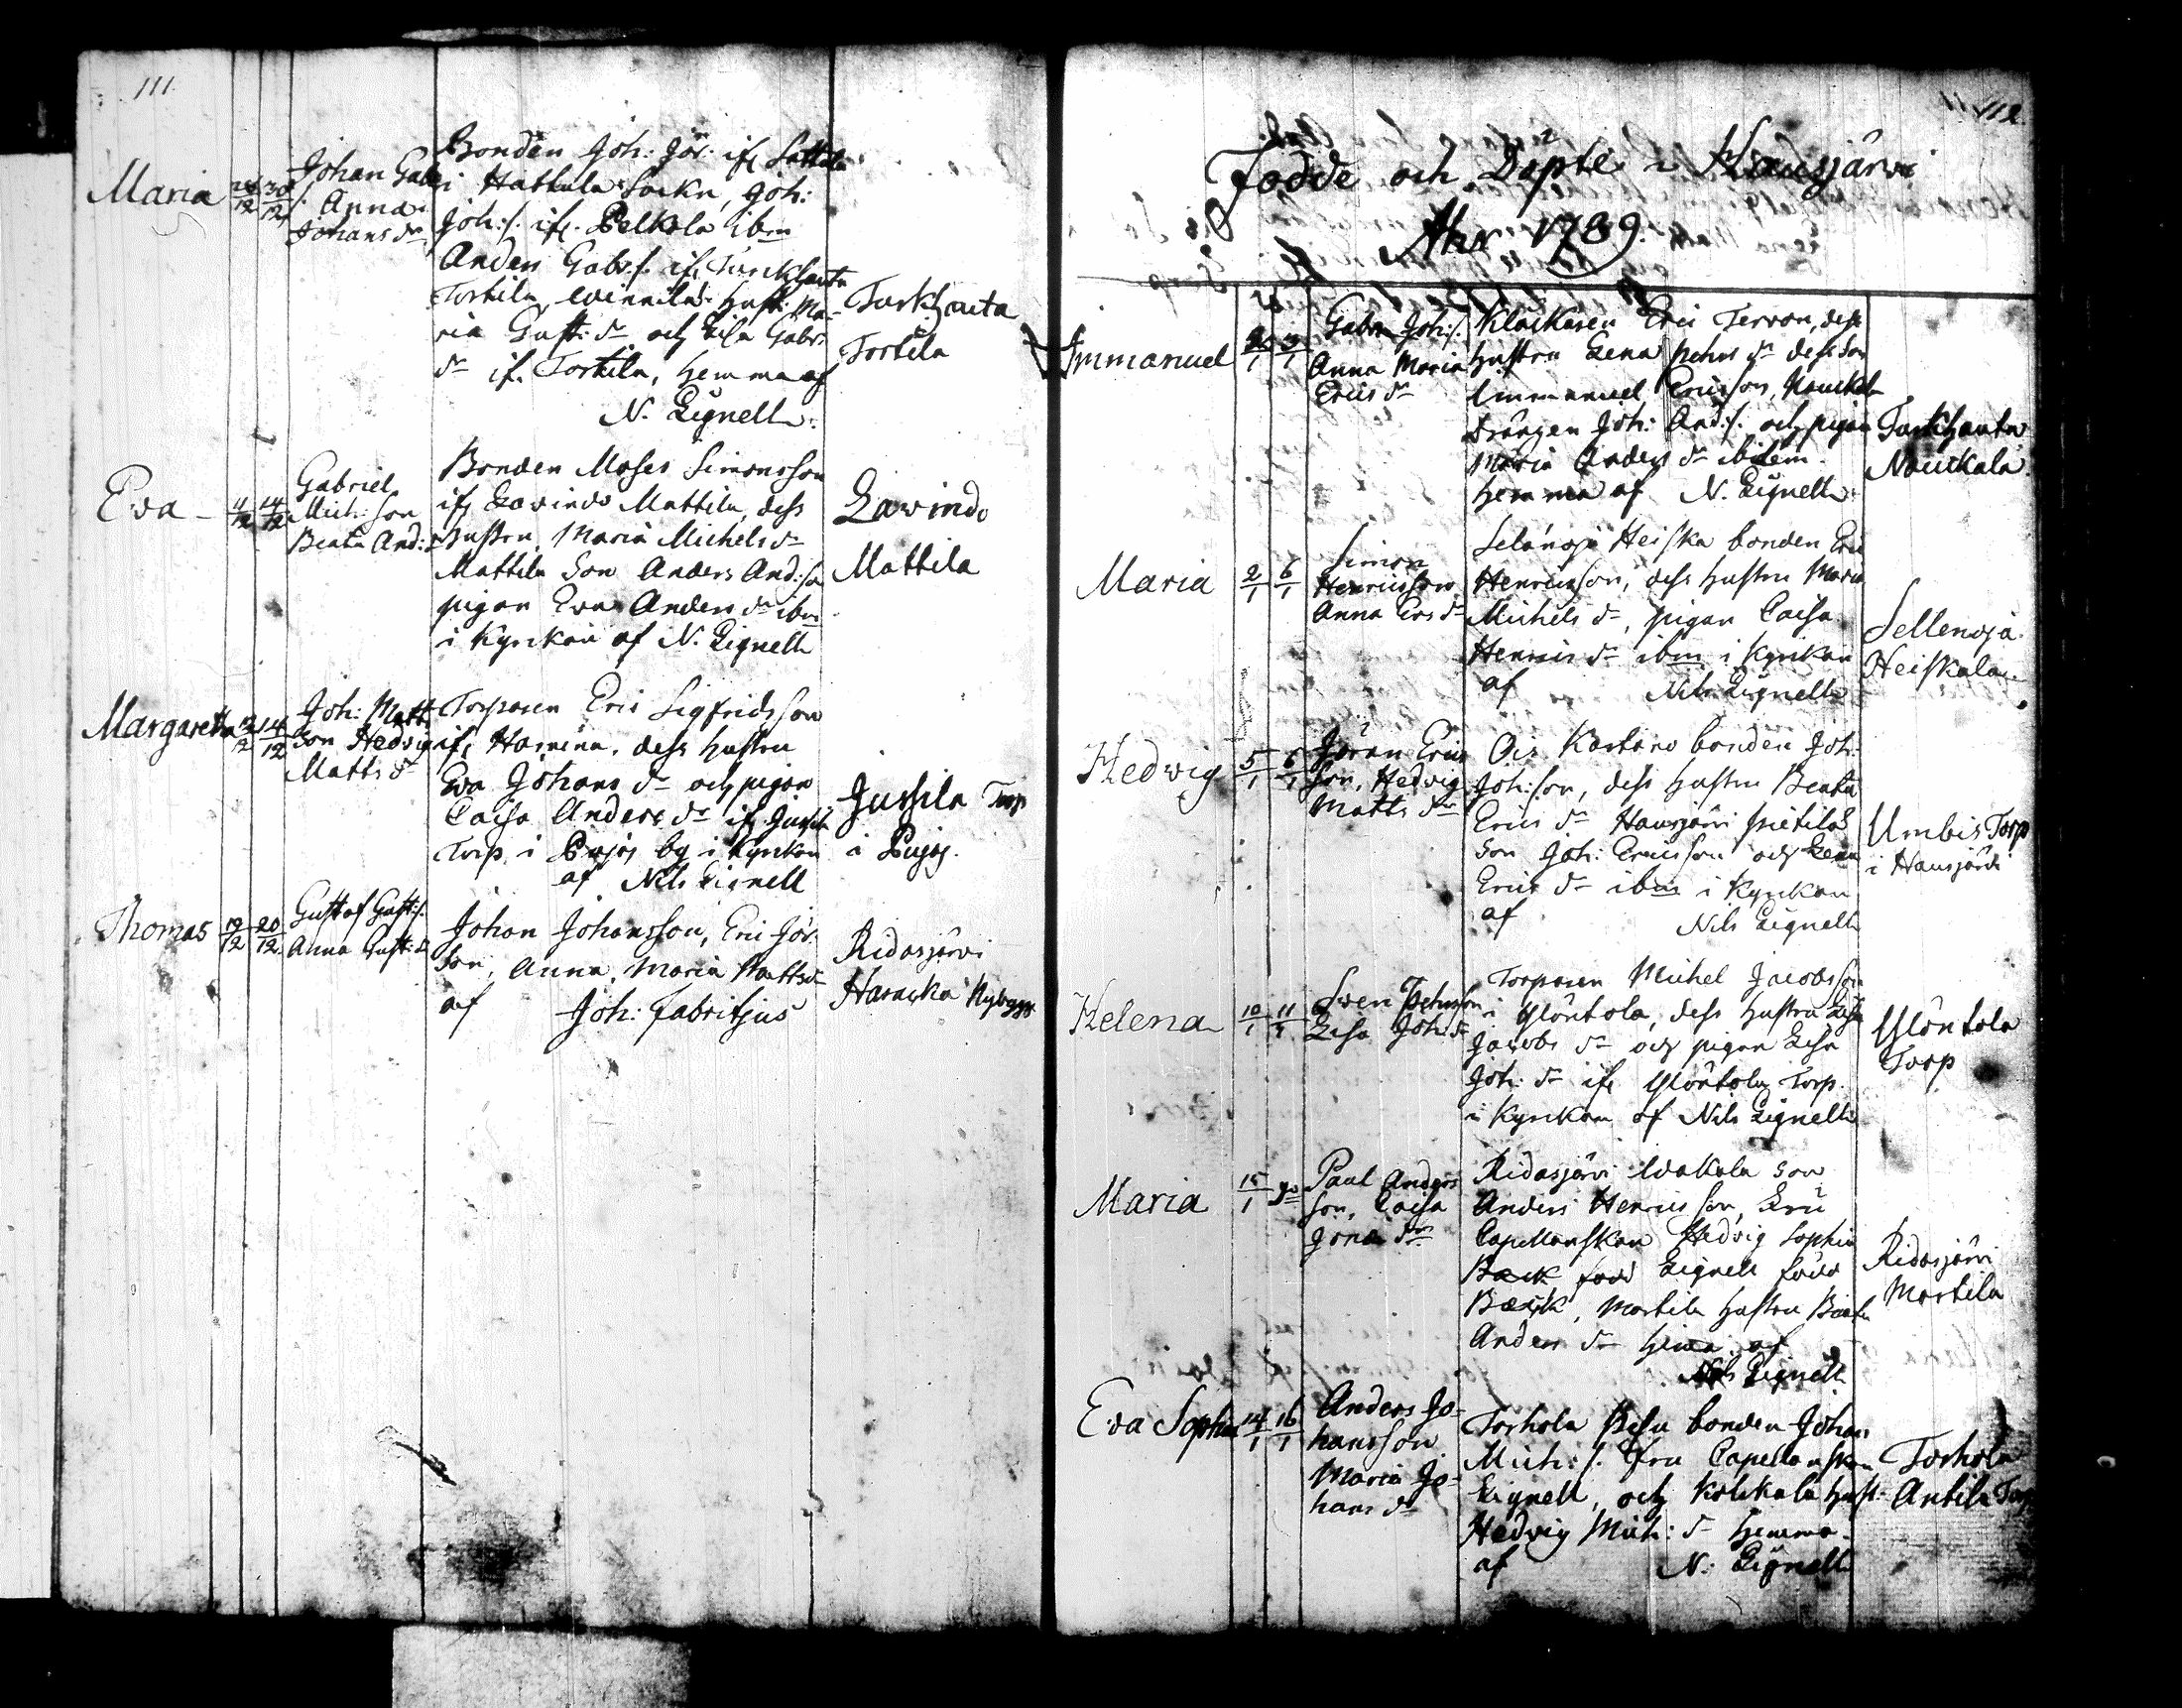 111.
Maria
Johan Gab:
s. Anna
Johans dr.
Bonden Joh: Jör. ifr. Sattula
i Hattula Sockn, Joh:
Joh:s. ifr. Pelkola ibm
Anders Gabr:s. ifr. Turckhauta
Tortila, hustr. Ma-
ria Gust: dr och Lisa Gabr:
dr ifr. Tortila, hemma af
N. Lignell.
Turkhauta
Tortila
Eva 11/12 14/12
Gabriel
Mich: son
Beata And: dr
Bonden Moses Simonsson
ifr Lavindo Mattila, dess
hustru, Maria Michels dr
Mattila Son Anders And:son
pigan Eva Anders dr ibm
i Kyrkan af N. Lignell
Lavindo
Mattila
Margareta 12/12 14/12
Joh: Matts
son Hedvig
Matts dr
Torparen Eric Sigfridsson
ifr. dess hustru
Eva Johans dr och pigan
Caisa Anders dr ifr. Jussila
Torp i by i Kyrkan
af Nils Lignell
Jussila Torp
i
Thomas 19/12 20/12
Gustaf Gust:s.
Anna Gust: dr
Johan Johansson, Eric Jör.
son, Anna Maria Matts dr
af Joh: Fabritius
Ridasjärvi
Nybygge
112.
Födde och Döpte i Hausjärvi
Åhr 1789.
Immanuel
Gabr: Joh:s.
Anna Maria
Erics dr
Klåckaren Eric Tervon, dess
hustru Lena Pehrs dr dess Son
Immanuel Ericsson, Nauckala
Drängen Joh: And:s. och pigan
Maria Anders dr ibidem.
hemma af N. Lignell.
Turkhauta
Nauckala
Maria 2/1 6/1
Simon
Henricsson
Anna Ers dr
Selänojs Heiska bonden Eric
Henricsson, dess hustru Maria
Michels dr, pigan Caisa
Henrics dr ibm i Kyrkan
af Nils Lignell
Sellenoja
Heiskala
Hedwig 5/1 6/1
Jöran Erics
son, Hedvig
Matts dr
Ois Kartano bonden Joh:
Joh:son, dess hustru Beata
Erics dr Hausjärvi Pietilä
Son Joh: Ericsson och Lena
Erics dr ibm i Kyrkan
af Nils Lignell
Umbis Torp
i Hausjärvi
Helena 10/1 11/1
Sven Pehrsson
Lisa Joh: dr
Torparen Michel Jacobsson
i Ylöntola, dess hustru Lisa
Jacobs dr och pigan Lisa
Joh: dr ifr Ylöntola Torp.
i Kyrkan af Nils Lignell
Ylöntola
Torp
Maria 15/1
Paul Anders
son, Caisa
Jöra dr
Ridasjärvi Wakala Son
Anders Henricsson, Fru
Capellanskan Hedvig Sophia
Bäck född Lignell född
Bäck, Martila hustru Beata
Anders dr hema af
Nils Lignell
Ridasjärvi
Martila
Eva Sophia 14/1 16/1
Anders Jo-
hansson
Maria Jo-
hans dr
Torhola bonden Johan
Mich:s. Fru Capellanskan
Lignell, och hust:
Hedvig Mich: dr hemma
af N: Lignell
Torhola
Antila Torp